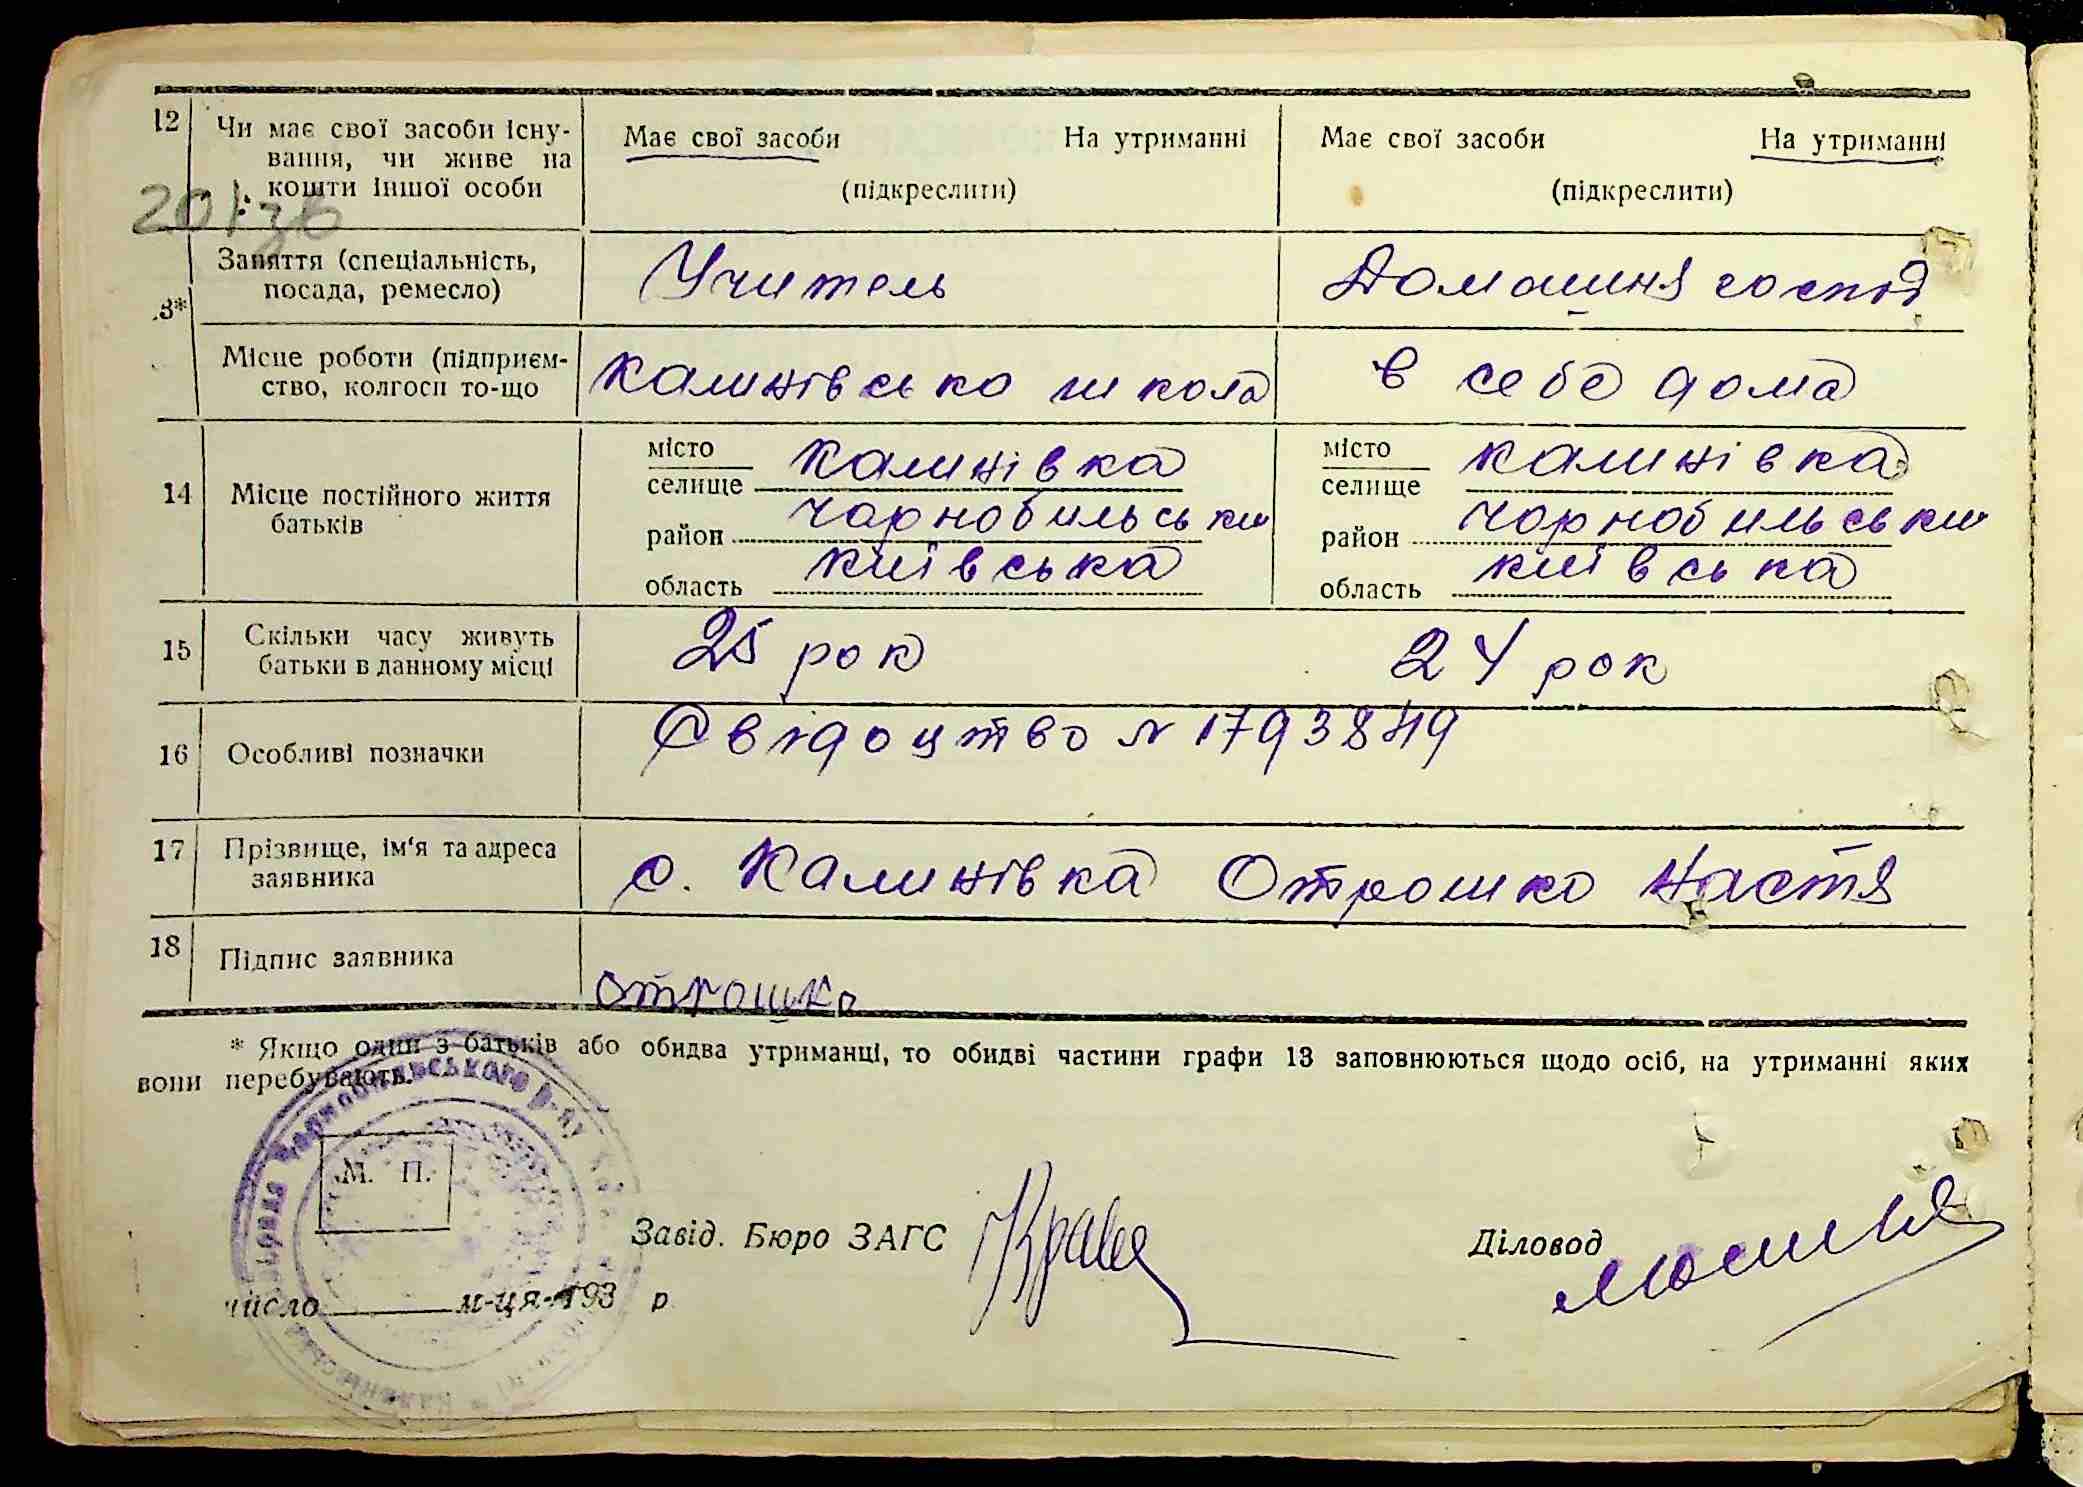 12 Чи має свої засоби існу-
вання, чи живе на
кошти іншої особи
Має свої засоби На утриманні
(підкреслити)
Має свої засоби На утриманні
(підкреслити)
201 зв
3*
Заняття (спеціальність,
посада, ремесло)
Учитель
Домашня господ
Місце роботи (підприєм-
ство, колгосп то-що
Калинівсько школа
в себе дома
14 Місце постійного життя
батьків
місто
селище Калинівка
район Чорнобильськи
область Київська
місто
селище Калинівка
район Чорнобильськи
область Київська
15 Скільки часу живуть
батьки в данному місці
25 рок
24 рок
16 Особливі позначки
Свідоцтво N 1793849
17 Прізвище, ім'я та адреса
заявника
с. Калинівка Отрошко Настя
18 Підпис заявника
Отрошко
* Якщо один з батьків або обидва утриманці, то обидві частини графи 13 заповнюються щодо осіб, на утриманні яких
вони перебувають.
Чорнобильського р-ну
М. П.
Завід. Бюро ЗАГС
Діловод
число м-ця 193 р